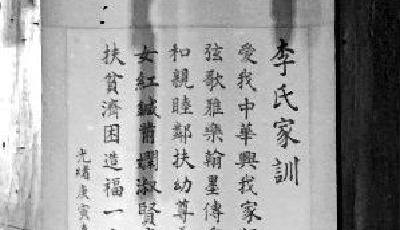 李氏家訓
愛我中華興我家
弦歌雅樂翰墨傳
和親睦鄰扶幼尊
女紅鍼黹嫻淑賢
扶貧濟困造福一
光緒庚寅